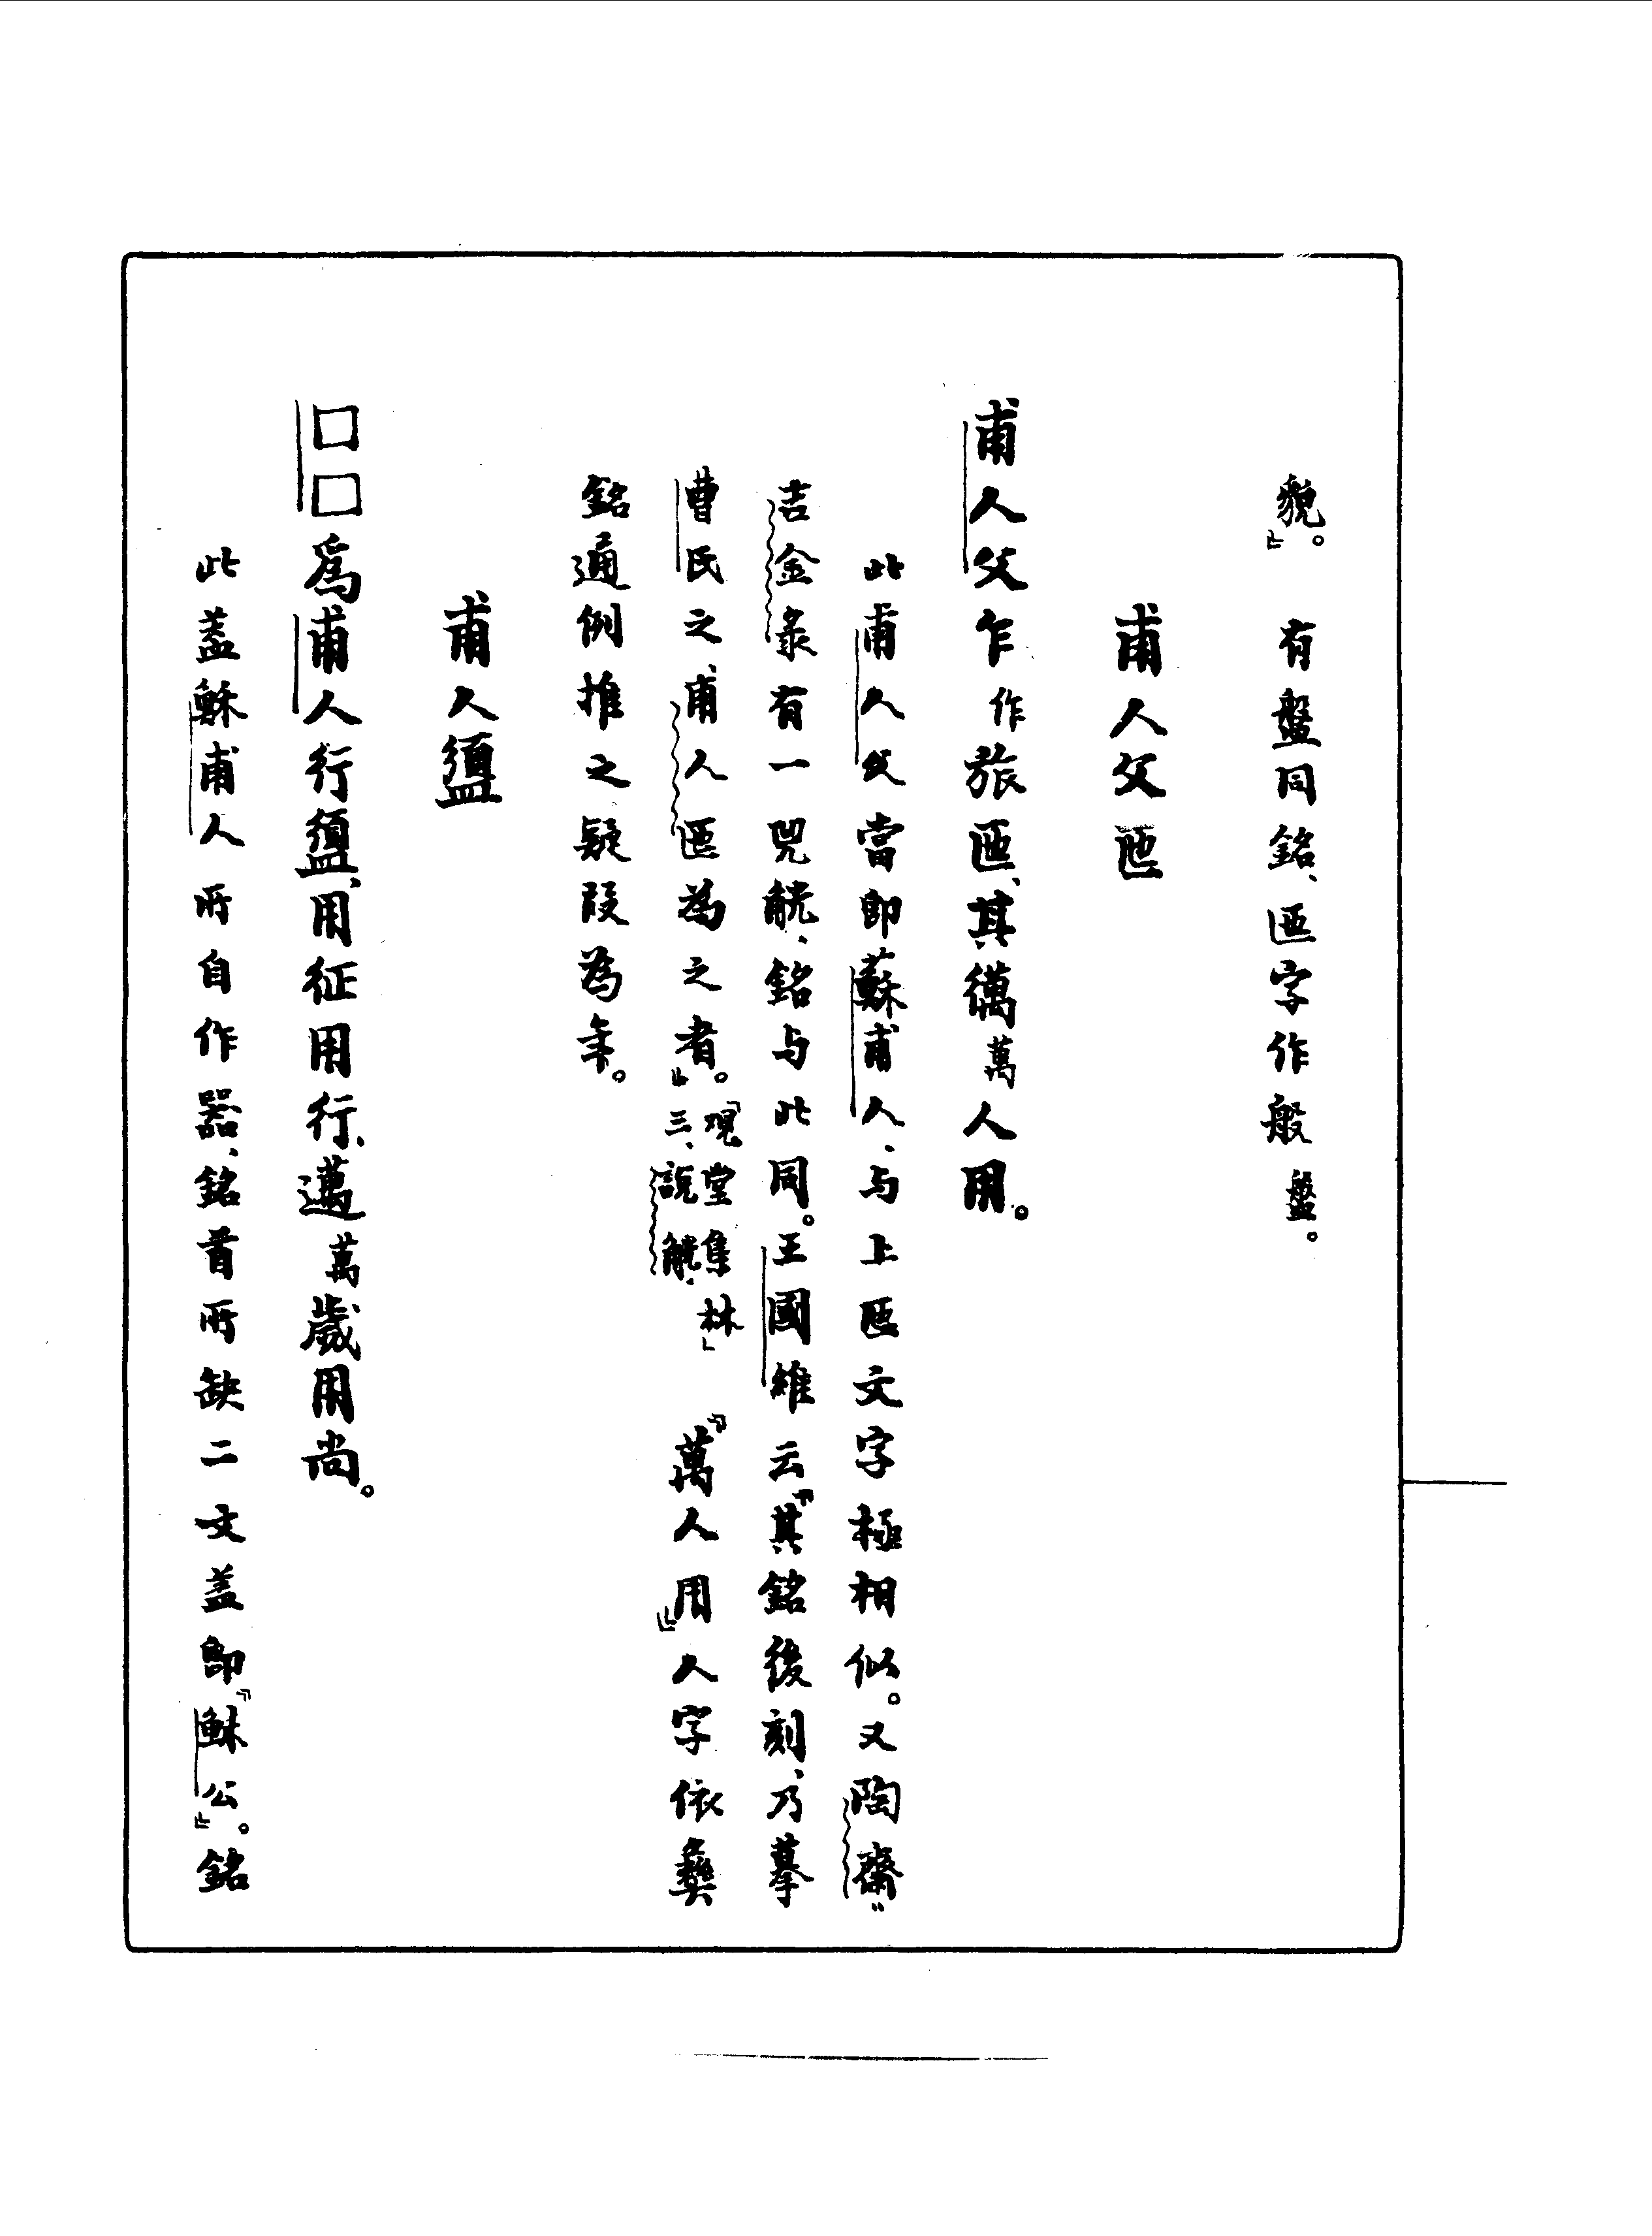 貌』。　有盤同銘、匜字作般盤。
甫人父匜
甫人父乍作旅匜、其𧁨萬人用。
此甫人父當即蘇甫人、与上匜文字極相似。又陶齋
吉金彔有一兕觥、銘与此同。王國維云『其銘後刻、乃摹
曹氏之甫人匜為之者』。「觀堂集林」三、說觥、『萬人用』人字依彝
銘通例推之疑叚為年。
甫人盨
□□為甫人行盨、用征用行、邁萬歲用尚。
此盖穌甫人所自作器、銘首所缺二文盖即『穌公』。銘